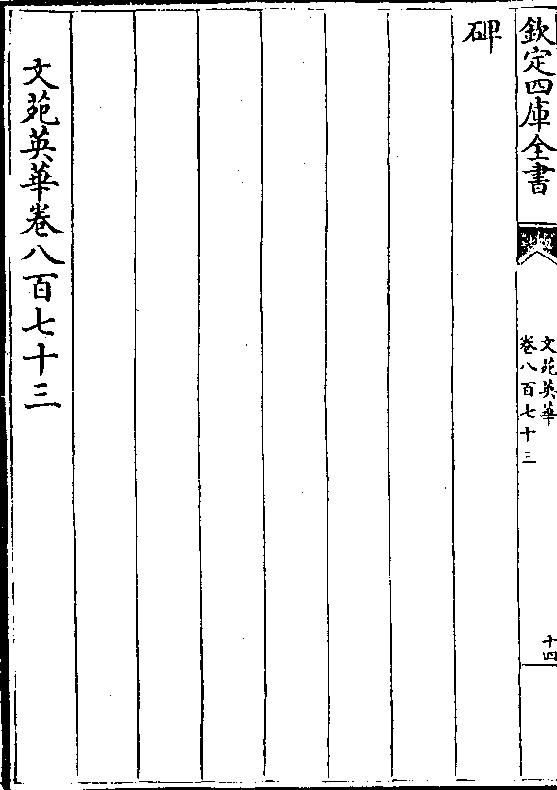 欽定四庫全書
文苑英華
卷八百七十三
十四
碑
文苑英華卷八百七十三